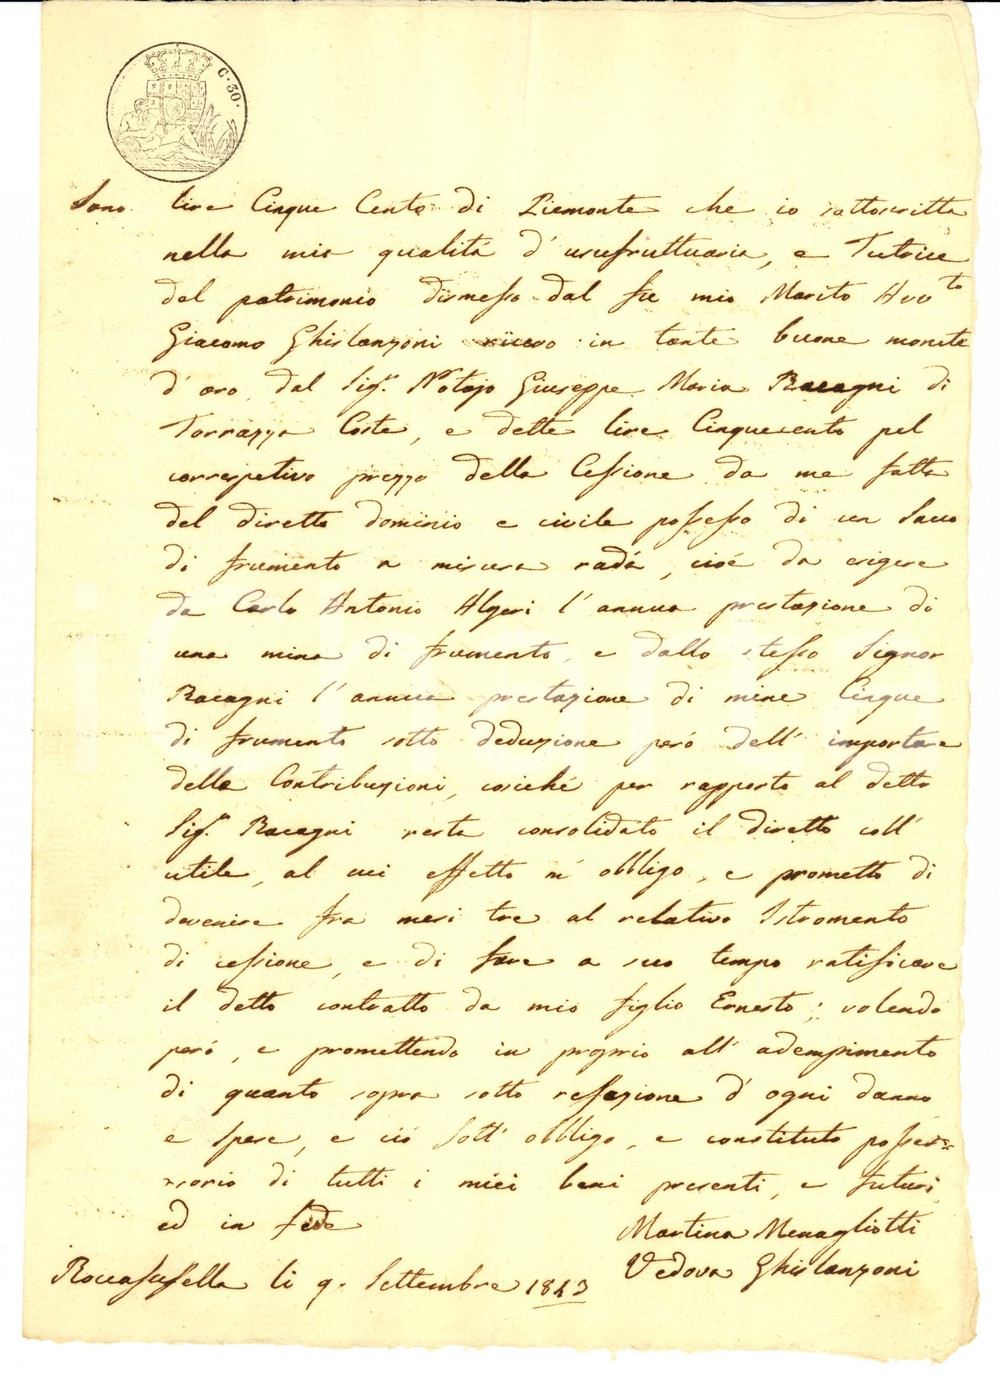 C. 30.
Sono lire Cinque Cento di Piemonte che io sottoscritta
nella mia qualità d'usufruttuaria, e Tutrice
del patrimonio dismesso dal fu mio Marito Avv.to
Giacomo Ghislanzoni ricevo in tante buone monete
d'oro dal Sig.r Notajo Giuseppe Maria Racagni di
Torrazza Coste, e dette lire Cinquecento pel
correspetivo prezzo della Cessione da me fatta
del diretto dominio e civile possesso di un Sacco
di frumento a misura radà, cioè da esigere
da Carlo Antonio Algeri l'annua prestazione di
una mina di frumento, e dallo stesso Signor
Racagni l'annua prestazione di mine Cinque
di frumento sotto deduzione però dell'importare
delle Contribuzioni, cosichè per rapporto al detto
Sig.r Racagni resta consolidato il diretto coll'
utile, al cui effetto m'obbligo, e prometto di
devenire fra mesi tre al relativo Istromento
di cessione, e di fare a suo tempo ratificare
il detto contratto da mio figlio Ernesto; volendo
però, e promettendo in proprio all'adempimento
di quanto sopra sotto reffazione d'ogni danno
e spese, e ciò sott'obbligo, e constituto posses-
sorio di tutti i miei beni presenti, e futuri
ed in fede
Martina Menagliotti
Vedova Ghislanzoni
Roccasusella li 9. Settembre 1843